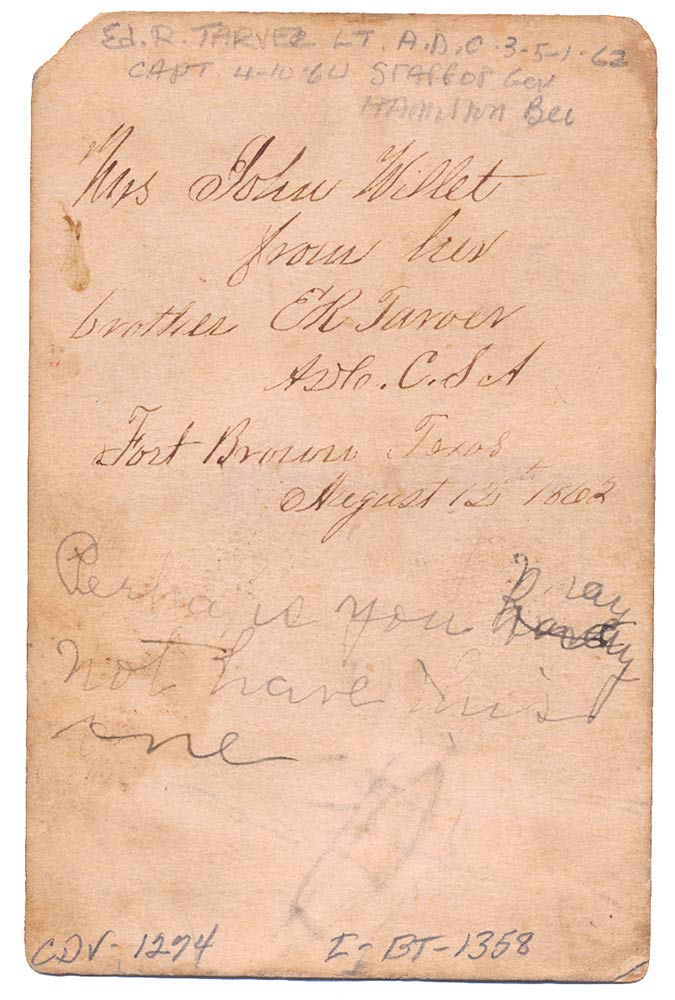 Ed. R. TARVER LT. A.D.C. 3-5-1-62
CAPT. 4-10-64 STAFF OF Gen
HAMILTON Bee
Mrs John Willet
from her
brother E R Tarver
ADC. C.S A
Fort Brown Texas
August 12th 1862
Perhaps you may
not have this
one
CDV-1274 I-BT-1358